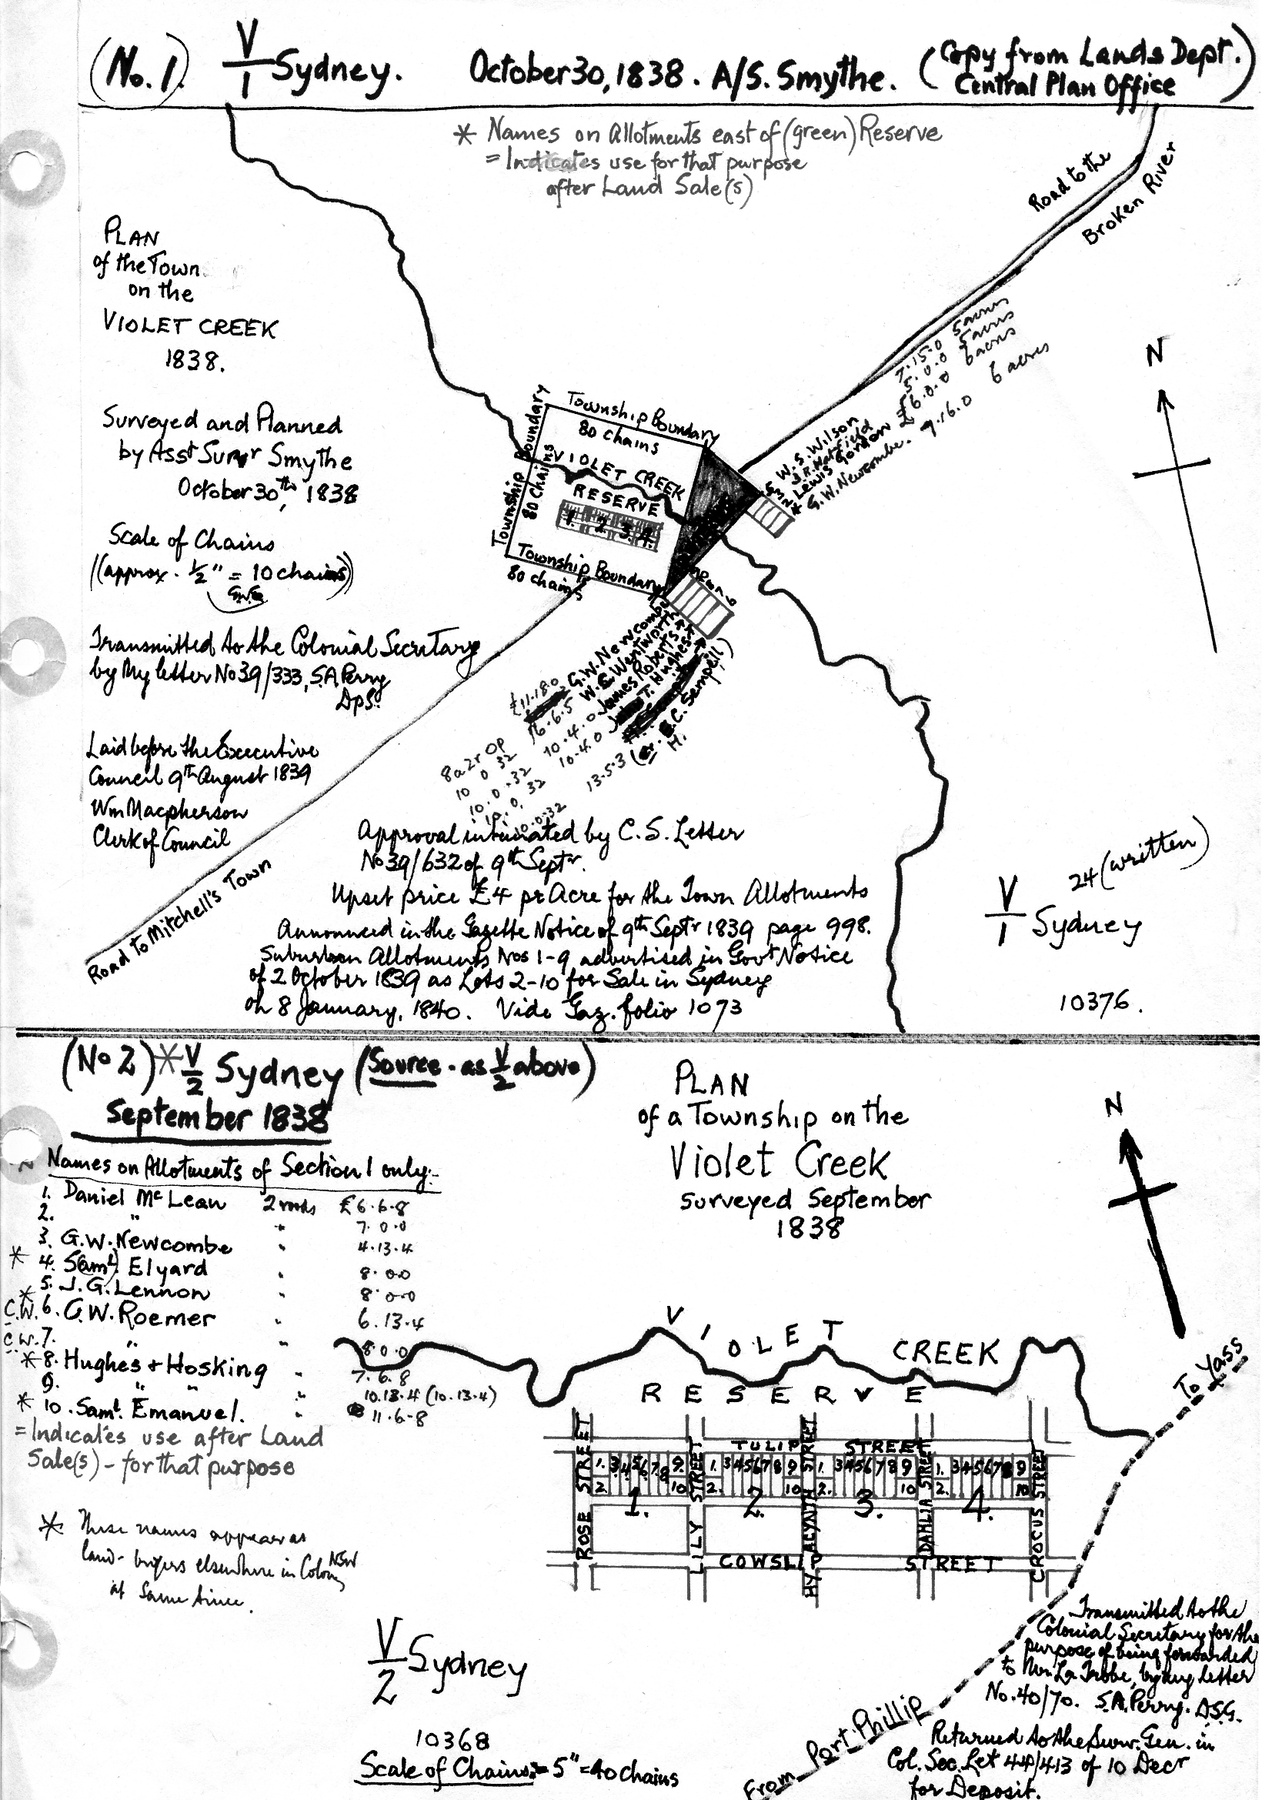 (No. 1). V/1 Sydney. October 30, 1838. A/S. Smythe. (Copy from Lands Dept.)
Central Plan Office
* Names on Allotments east of (green) Reserve
= Indicates use for that purpose
after Land Sale(s)
Road to the
Broken River
PLAN
of the Town
on the
VIOLET CREEK
1838.
Surveyed and Planned
by Asst Survr Smythe
October 30th, 1838
Scale of Chains
((approx. 1/2" = 10 chains))
Transmitted to the Colonial Secretary
by My letter No 39/333, S.A. Perry
DpS.
Laid before the Executive
Council 9th August 1839
Wm Macpherson
Clerk of Council
N
Township Boundary
80 chains
Township Boundary
80 Chains
VIOLET CREEK
RESERVE
1. 2. 3. 4.
Township Boundary
80 chains
W. S. Wilson 7.15.0 5 acres
J.R. Hatfield 5.0.0 5 acres
Lewis Gordon £6.0.0 6 acres
G.W. Newcombe. 7.16.0 6 acres
£11.18.0 G.W. Newcombe
16.6.5 W.C. Wentworth
10.4.0 James Roberts
10.4.0 T. Hughes
13.5.3 (or C. Sempill)
H.
8a 2r 0p
10 0 32
10. 0. 32
10. 0. 32
10.0.32
Road to Mitchell's Town
Approval intimated by C.S. Letter
No 39/632 of 9th Septr.
Upset price £4 pr Acre for the Town Allotments
Announced in the Gazette Notice of 9th Septr 1839 page 998.
Suburban Allotments Nos 1-9 advertised in Govt Notice
of 2 October 1839 as Lots 2-10 for Sale in Sydney
on 8 January, 1840. Vide Gaz. folio 1073
24 (written)
V/1 Sydney
10376.
(No 2) * V/2 Sydney (Source - as V/2 above)
September 1838
Names on Allotments of Section 1 only:-
1. Daniel McLean 2 roods £6.6.8
2. " " 7.0.0
3. G.W. Newcombe " 4.13.4
* 4. S(aml) Elyard " 8.0.0
* 5. J.G. Lennon " 8.0.0
C.W. 6. G.W. Roemer " 6.13.4
C.W. 7. " 8.0.0
* 8. Hughes + Hosking " 7.6.8
9. " " " 10.13.4 (10.13.4)
* 10. Saml. Emanuel. " 11.6.8
= Indicates use after Land
Sale(s) - for that purpose
* These names appear as
land-buyers elsewhere in Colony NSW
at same time.
PLAN
of a Township on the
Violet Creek
surveyed September
1838
N
VIOLET CREEK
RESERVE
TULIP STREET
ROSE STREET
LILY STREET
HYACYNTH STREET
DAHLIA STREET
CROCUS STREET
1. 3 4 5 6 7 8 9.
2. 10
1. 3 4 5 6 7 8 9
2. 10
1. 3 4 5 6 7 8 9
2. 10
1. 3 4 5 6 7 8 9
2. 10
1. 2. 3. 4.
COWSLIP STREET
To Yass
From Port Phillip
V/2 Sydney
10368
Scale of Chains:- 5" = 40 chains
Transmitted to the
Colonial Secretary for the
purpose of being forwarded
to Mr. La Trobe, by my letter
No. 40/70. S.A. Perry. D.S.G.
Returned to the Surv. Gen. in
Col. Sec. Let 44/413 of 10 Decr
for Deposit.